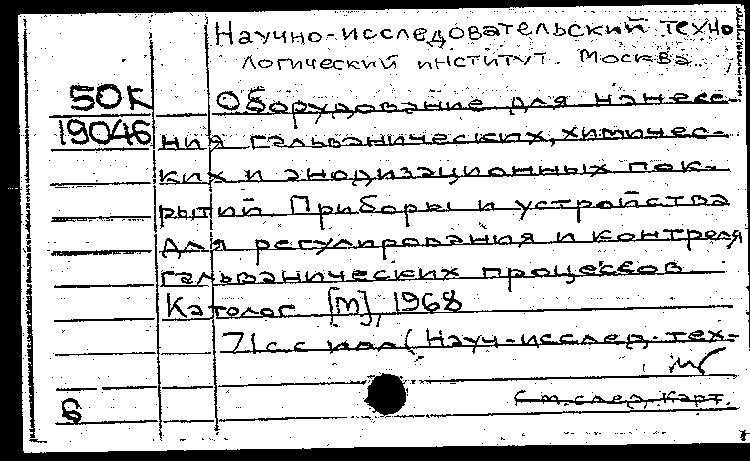 Научно-исследовательский техно
логический институт. Москва.
50К Оборудование для нанесе-
19046 ния гальванических, химичес-
ких и анодизационных пок-
рытий Приборы и устройства
для регулирования и контроля
гальванических процессов
Каталог [М], 1968
71с. с илл (Науч.-исслед. тех-
см. след. карт.
б